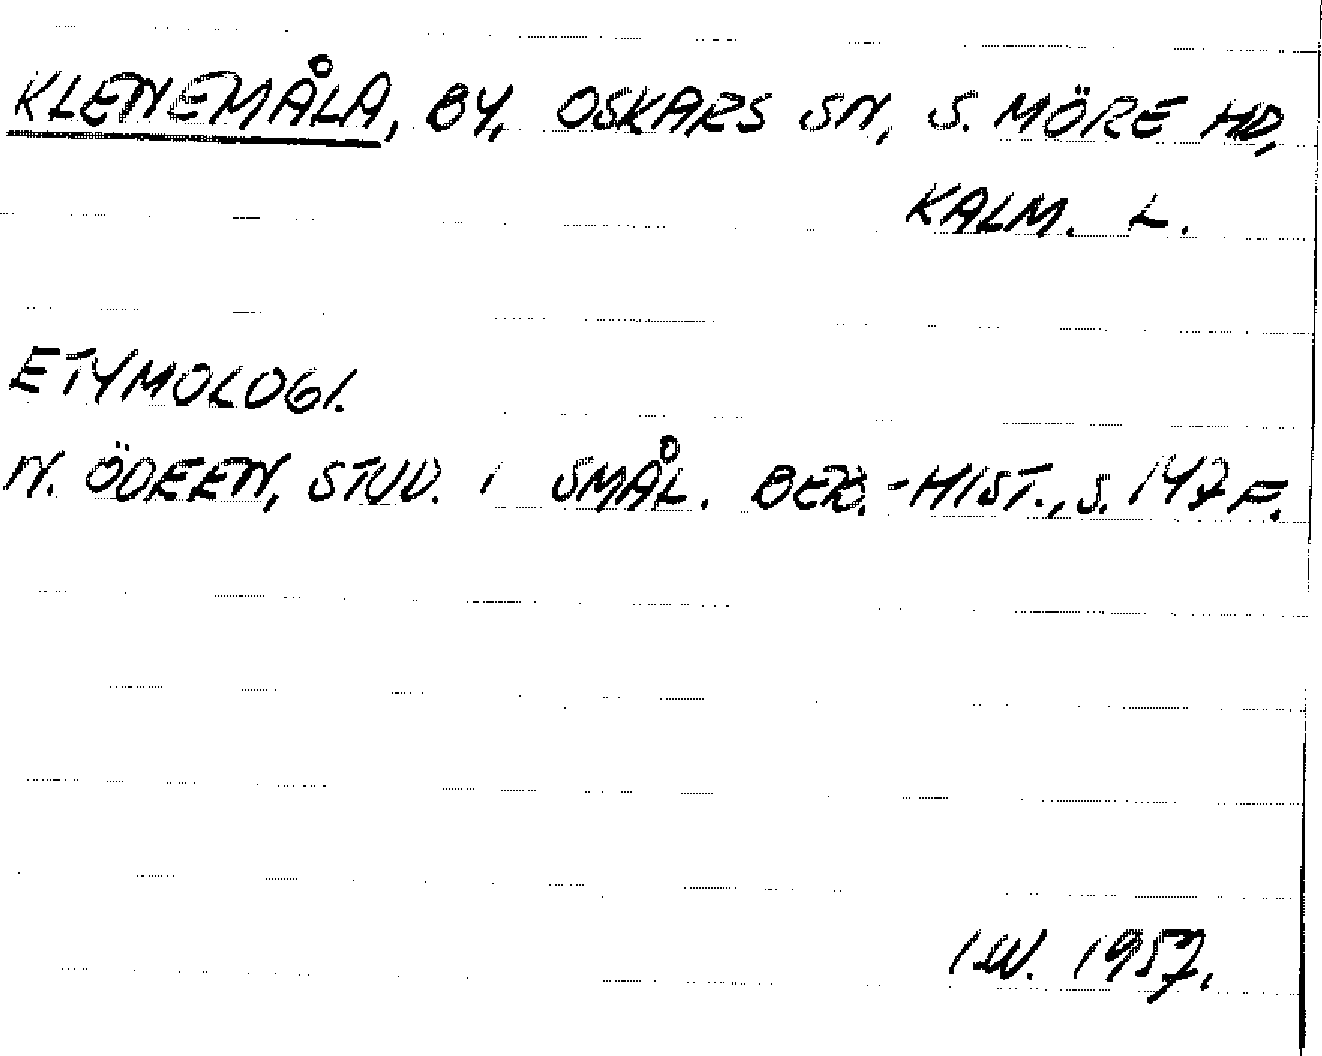 KLENEMÅLA, BY, OSKARS SN, S. MÖRE HD,
KALM. L.
ETYMOLOGI.
N. ÖDEEN, STUD. I SMÅL. BEB.-HIST., S. 147 F.
I.W. 1957.